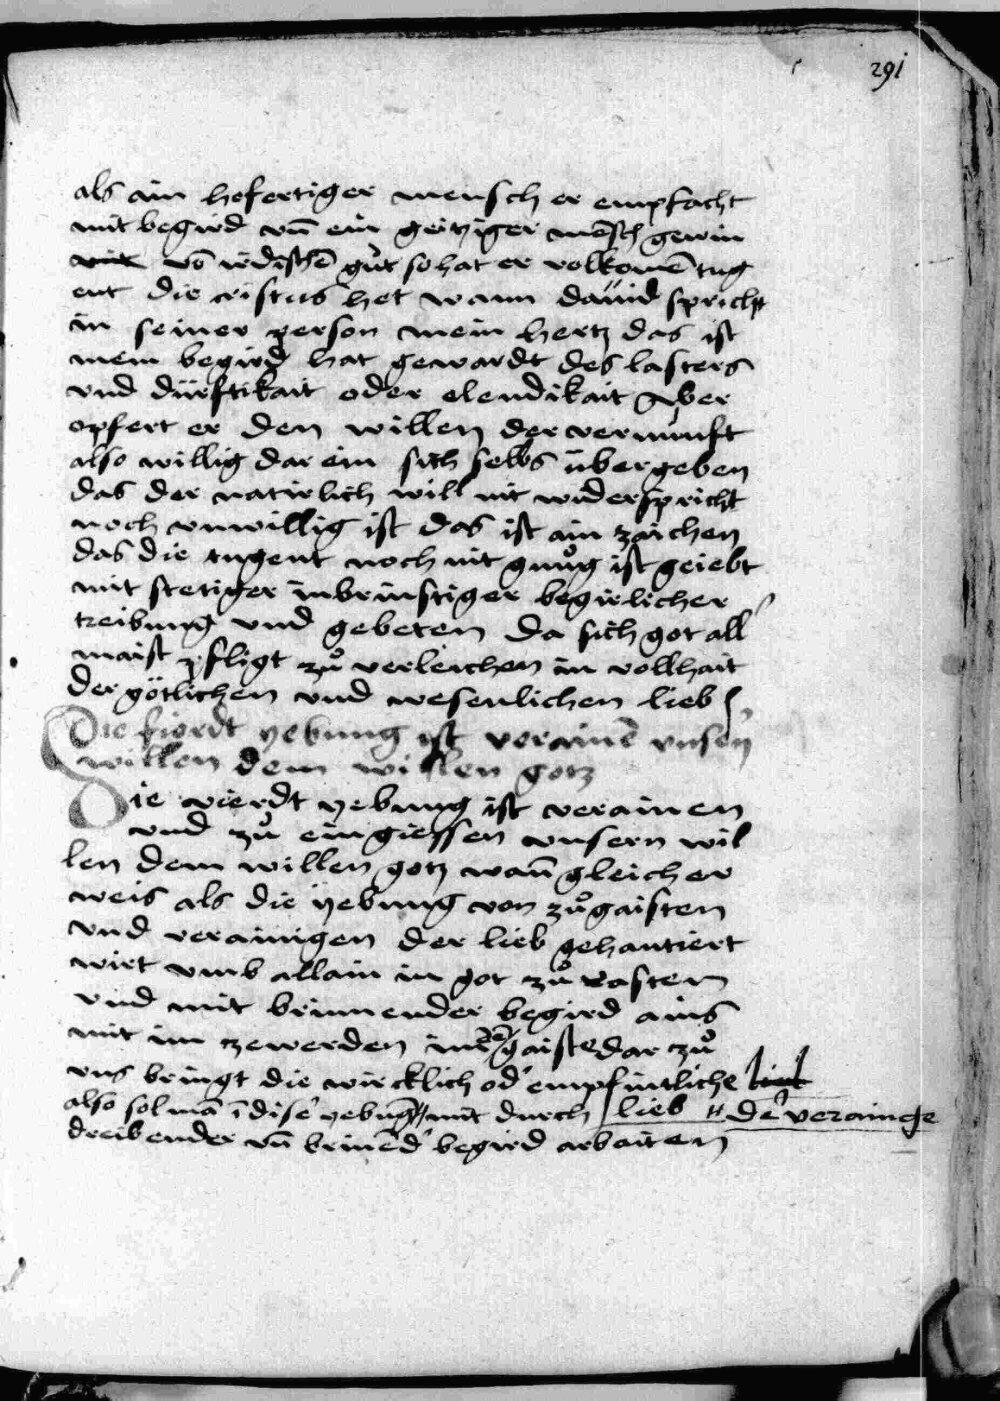 291
als ain hofertiger mensch er empfacht
mit begird vn̄ ein geitziger mēsch gewin
mit vō irdischē gůt so hat er volkomē tug
ent die cristus het wann dauid spricht
in seiner person mein hertz das ist
mein begird hat gewardt des lasters
vnd dürftikait oder elendikait Aber
opfert er den willen der vernunft
also willig dar ein sich selbs übergeben
das der natirlich will nit widerspricht
noch vnwillig ist das ist ain zaichen
das die tugent noch nit gnůg ist geiebt
mit stetiger inbrinstiger begirlicher
treibung vnd gebeten Da sich got all
maist pfligt zů verleichen in vollhait
der götlichen vnd wesenlichen lieb
Die fierdt yebung ist verainē vnsern
willen dem willen gotz
Die vierdt yebung ist verainen
vnd zů eingiessen vnsern wil
len dem willen gotz wan̄ gleicher
weis als die yebung von zůgaisten
vnd verainigen der lieb gehantiert
wirt vmb allain in got zů rasten
vnd mit brinnender begird ains
mit im zewerden im gaiste dar zů
vns bringt die wircklich od' empfintliche
also sol man ī dise' yebūg mit durch lieb de' verainge
dreibender vn̄ brinēd' begird arbaiten